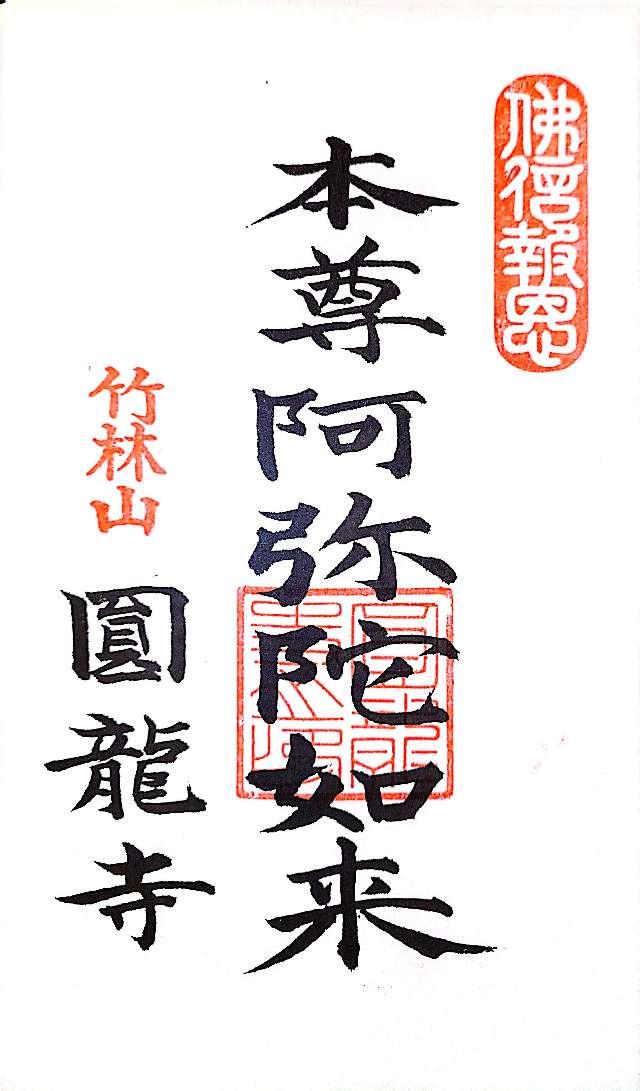 佛徳報恩
本尊阿弥陀如来
竹林山
圓龍寺